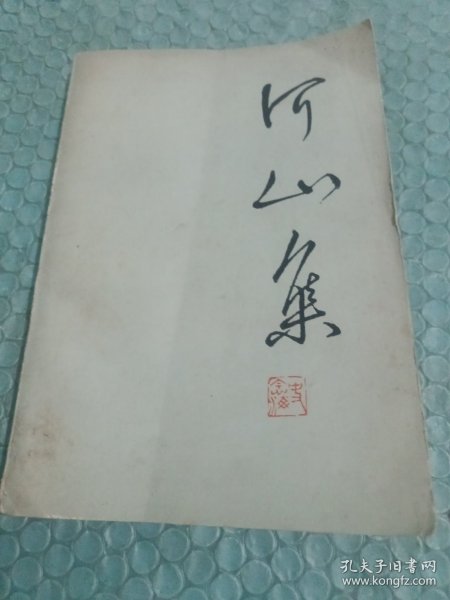 河山集
史念海
孔夫子旧书网
www.kongfz.com